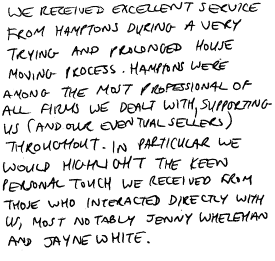 WE RECEIVED EXCELLENT SERVICE
FROM HAMPTONS DURING A VERY
TRYING AND PROLONGED HOUSE
MOVING PROCESS. HAMPTONS WERE
AMONG THE MOST PROFESSIONAL OF
ALL FIRMS WE DEALT WITH, SUPPORTING
US (AND OUR EVENTUAL SELLERS)
THROUGHOUT. IN PARTICULAR WE
WOULD HIGHLIGHT THE KEEN
PERSONAL TOUCH WE RECEIVED FROM
THOSE WHO INTERACTED DIRECTLY WITH
US, MOST NOTABLY JENNY WHELEHAN
AND JAYNE WHITE.